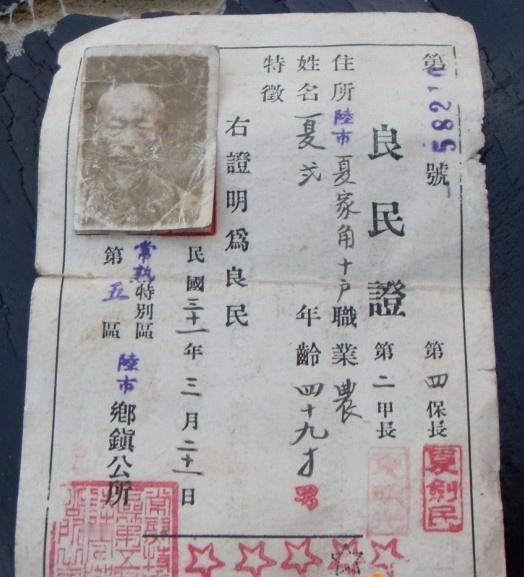 第 號
第四保長 夏劍民
良民證
第二甲長
住所陸市夏家角十户職業農
姓名夏 年齡四十九才 男
特徵
右證明爲良民
民國三十一年三月二十一日
常熟特別區
第五區
陸市鄉鎮公所